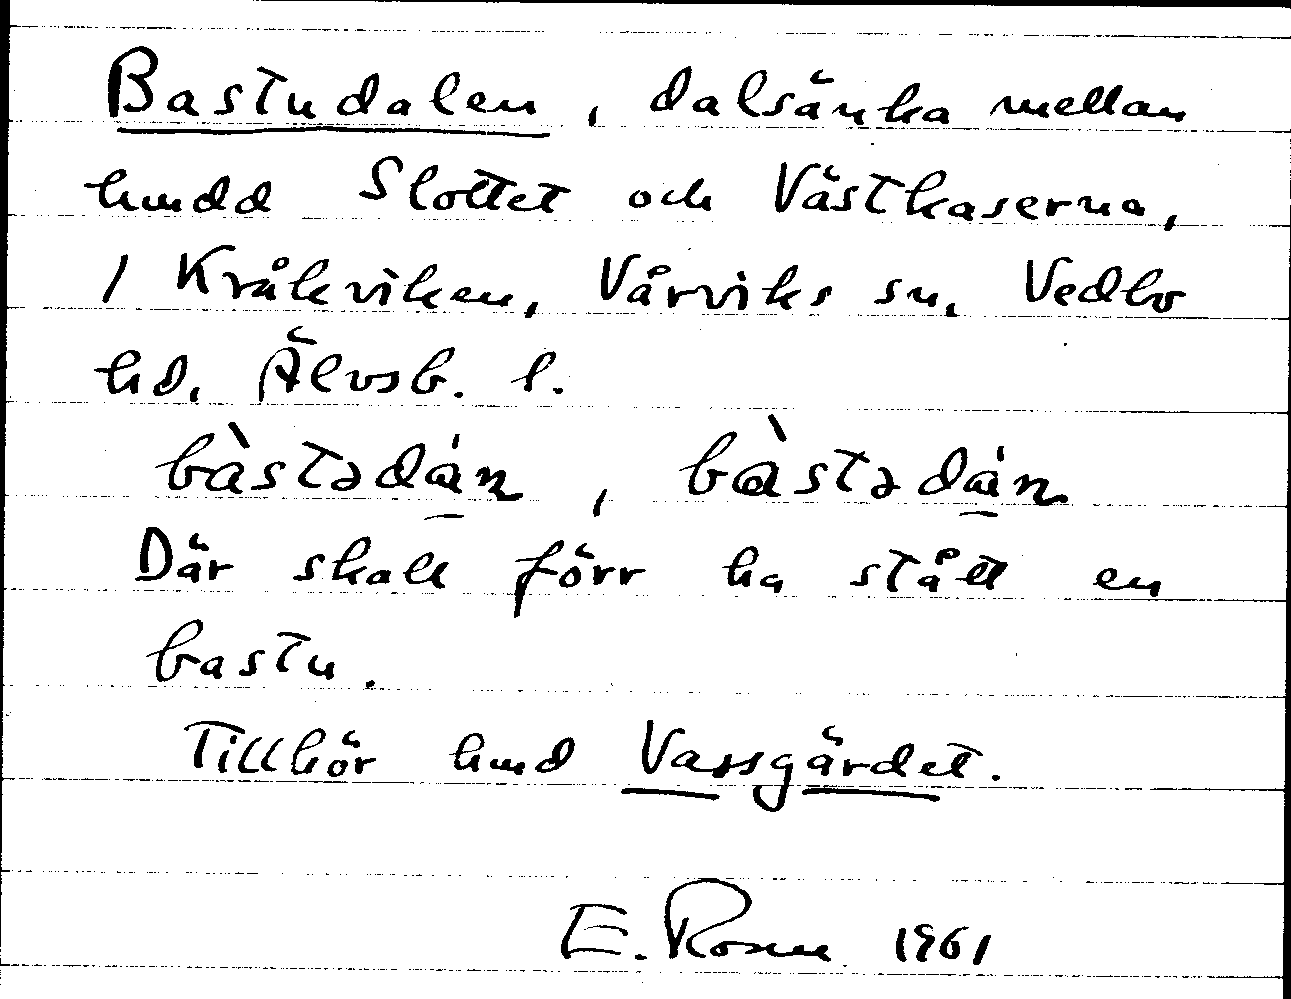 Bastudalen, dalsänka mellan
hmdd Slottet och Västkaserna,
1 Kråkviken, Vårviks sn, Vedbo
hd, Älvsb. l.
bàstədán, bàstədán
Där skall förr ha stått en
bastu.
Tillhör hmd Vassgärdet.
E. Rosen 1961